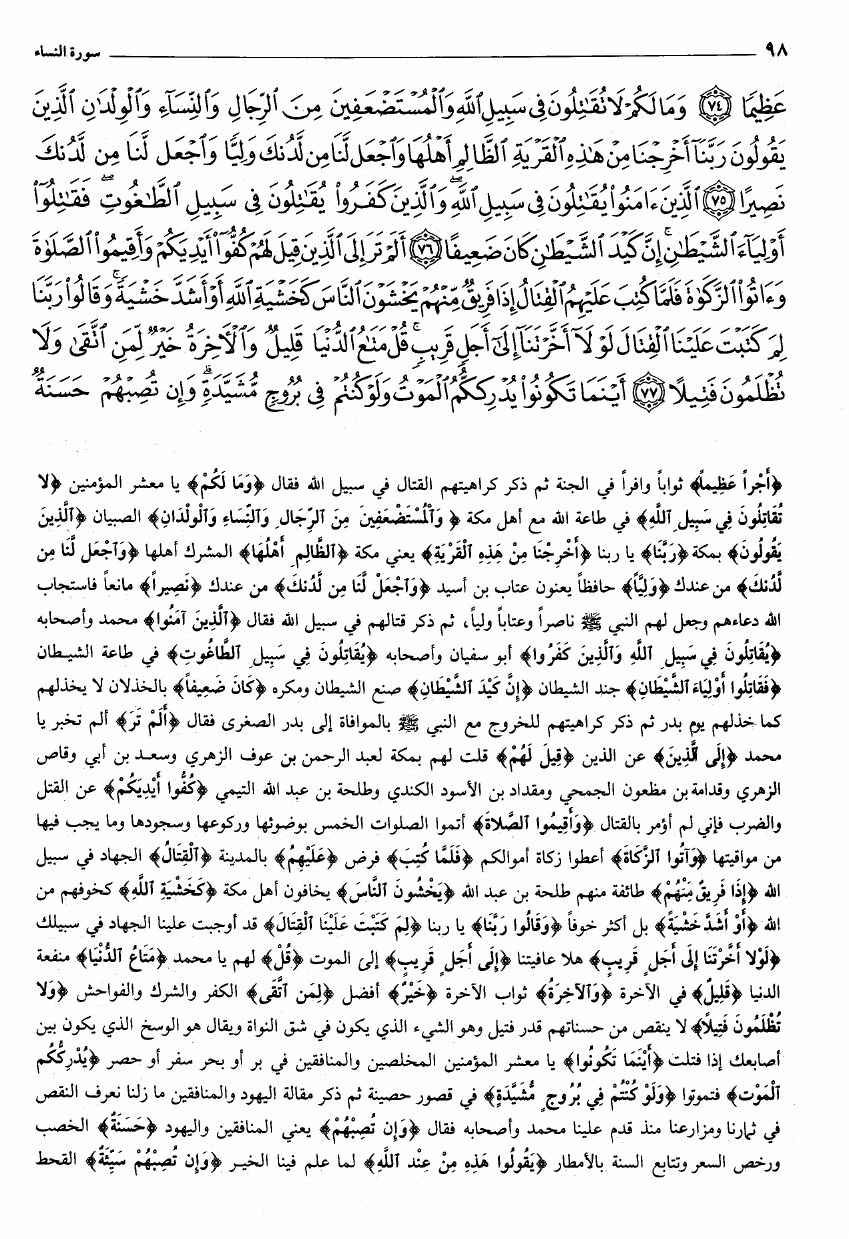 ٩٨ سورة النساء
عَظِيمًا ﴿٧٤﴾ وَمَا لَكُمْ لَا تُقَٰتِلُونَ فِى سَبِيلِ ٱللَّهِ وَٱلْمُسْتَضْعَفِينَ مِنَ ٱلرِّجَالِ وَٱلنِّسَآءِ وَٱلْوِلْدَٰنِ ٱلَّذِينَ
يَقُولُونَ رَبَّنَآ أَخْرِجْنَا مِنْ هَٰذِهِ ٱلْقَرْيَةِ ٱلظَّالِمِ أَهْلُهَا وَٱجْعَل لَّنَا مِن لَّدُنكَ وَلِيًّا وَٱجْعَل لَّنَا مِن لَّدُنكَ
نَصِيرًا ﴿٧٥﴾ ٱلَّذِينَ ءَامَنُوا۟ يُقَٰتِلُونَ فِى سَبِيلِ ٱللَّهِ ۖ وَٱلَّذِينَ كَفَرُوا۟ يُقَٰتِلُونَ فِى سَبِيلِ ٱلطَّٰغُوتِ ۖ فَقَٰتِلُوٓا۟
أَوْلِيَآءَ ٱلشَّيْطَٰنِ ۖ إِنَّ كَيْدَ ٱلشَّيْطَٰنِ كَانَ ضَعِيفًا ﴿٧٦﴾ أَلَمْ تَرَ إِلَى ٱلَّذِينَ قِيلَ لَهُمْ كُفُّوٓا۟ أَيْدِيَكُمْ وَأَقِيمُوا۟ ٱلصَّلَوٰةَ
وَءَاتُوا۟ ٱلزَّكَوٰةَ فَلَمَّا كُتِبَ عَلَيْهِمُ ٱلْقِتَالُ إِذَا فَرِيقٌ مِّنْهُمْ يَخْشَوْنَ ٱلنَّاسَ كَخَشْيَةِ ٱللَّهِ أَوْ أَشَدَّ خَشْيَةً ۚ وَقَالُوا۟ رَبَّنَا
لِمَ كَتَبْتَ عَلَيْنَا ٱلْقِتَالَ لَوْلَآ أَخَّرْتَنَآ إِلَىٰٓ أَجَلٍ قَرِيبٍ ۗ قُلْ مَتَٰعُ ٱلدُّنْيَا قَلِيلٌ وَٱلْءَاخِرَةُ خَيْرٌ لِّمَنِ ٱتَّقَىٰ وَلَا
تُظْلَمُونَ فَتِيلًا ﴿٧٧﴾ أَيْنَمَا تَكُونُوا۟ يُدْرِككُّمُ ٱلْمَوْتُ وَلَوْ كُنتُمْ فِى بُرُوجٍ مُّشَيَّدَةٍ ۗ وَإِن تُصِبْهُمْ حَسَنَةٌ
﴿أَجْراً عَظِيماً﴾ ثواباً وافراً في الجنة ثم ذكر كراهيتهم القتال في سبيل الله فقال ﴿وَمَا لَكُمْ﴾ يا معشر المؤمنين ﴿لا
تُقَاتِلُونَ فِي سَبِيلِ ٱللَّهِ﴾ في طاعة الله مع أهل مكة ﴿وَٱلْمُسْتَضْعَفِينَ مِنَ ٱلرِّجَالِ وَٱلنِّسَاءِ وَٱلْوِلْدَانِ﴾ الصبيان ﴿ٱلَّذِينَ
يَقُولُونَ﴾ بمكة ﴿رَبَّنَا﴾ يا ربنا ﴿أَخْرِجْنَا مِنْ هَذِهِ ٱلْقَرْيَةِ﴾ يعني مكة ﴿ٱلظَّالِمِ أَهْلُهَا﴾ المشرك أهلها ﴿وَٱجْعَل لَنَا مِن
لَّدُنكَ﴾ من عندك ﴿وَلِيّاً﴾ حافظاً يعنون عتاب بن أسيد ﴿وَٱجْعَلْ لَّنَا مِن لَّدُنكَ﴾ من عندك ﴿نَصِيراً﴾ مانعاً فاستجاب
الله دعاءهم وجعل لهم النبي ﷺ ناصراً وعتاباً ولياً، ثم ذكر قتالهم في سبيل الله فقال ﴿ٱلَّذِينَ آمَنُوا﴾ محمد وأصحابه
﴿يُقَاتِلُونَ فِي سَبِيلِ ٱللَّهِ وَٱلَّذِينَ كَفَرُوا﴾ أبو سفيان وأصحابه ﴿يُقَاتِلُونَ فِي سَبِيلِ ٱلطَّاغُوتِ﴾ في طاعة الشيطان
﴿فَقَاتِلُوا أَوْلِيَاءَ ٱلشَّيْطَانِ﴾ جند الشيطان ﴿إِنَّ كَيْدَ ٱلشَّيْطَانِ﴾ صنع الشيطان ومكره ﴿كَانَ ضَعِيفاً﴾ بالخذلان لا يخذلهم
كما خذلهم يوم بدر ثم ذكر كراهيتهم للخروج مع النبي ﷺ بالموافاة إلى بدر الصغرى فقال ﴿أَلَمْ تَرَ﴾ ألم تخبر يا
محمد ﴿إِلَى ٱلَّذِينَ﴾ عن الذين ﴿قِيلَ لَهُمْ﴾ قلت لهم بمكة لعبد الرحمن بن عوف الزهري وسعد بن أبي وقاص
الزهري وقدامة بن مظعون الجمحي ومقداد بن الأسود الكندي وطلحة بن عبد الله التيمي ﴿كُفُّوا أَيْدِيَكُمْ﴾ عن القتل
والضرب فإني لم أؤمر بالقتال ﴿وَأَقِيمُوا ٱلصَّلاةَ﴾ أتموا الصلوات الخمس بوضوئها وركوعها وسجودها وما يجب فيها
من مواقيتها ﴿وَآتُوا ٱلزَّكَاةَ﴾ أعطوا زكاة أموالكم ﴿فَلَمَّا كُتِبَ﴾ فرض ﴿عَلَيْهِمُ﴾ بالمدينة ﴿ٱلْقِتَالُ﴾ الجهاد في سبيل
الله ﴿إِذَا فَرِيقٌ مِنْهُمْ﴾ طائفة منهم طلحة بن عبد الله ﴿يَخْشَوْنَ ٱلنَّاسَ﴾ يخافون أهل مكة ﴿كَخَشْيَةِ ٱللَّهِ﴾ كخوفهم من
الله ﴿أَوْ أَشَدَّ خَشْيَةً﴾ بل أكثر خوفاً ﴿وَقَالُوا رَبَّنَا﴾ يا ربنا ﴿لِمَ كَتَبْتَ عَلَيْنَا ٱلْقِتَالَ﴾ قد أوجبت علينا الجهاد في سبيلك
﴿لَوْلا أَخَّرْتَنَا إِلَى أَجَلٍ قَرِيبٍ﴾ هلا عافيتنا ﴿إِلَى أَجَلٍ قَرِيبٍ﴾ إلى الموت ﴿قُلْ﴾ لهم يا محمد ﴿مَتَاعُ ٱلدُّنْيَا﴾ منفعة
الدنيا ﴿قَلِيلٌ﴾ في الآخرة ﴿وَٱلآخِرَةُ﴾ ثواب الآخرة ﴿خَيْرٌ﴾ أفضل ﴿لِمَنِ ٱتَّقَى﴾ الكفر والشرك والفواحش ﴿وَلا
تُظْلَمُونَ فَتِيلاً﴾ لا ينقص من حسناتهم قدر فتيل وهو الشيء الذي يكون في شق النواة ويقال هو الوسخ الذي يكون بين
أصابعك إذا فتلت ﴿أَيْنَمَا تَكُونُوا﴾ يا معشر المؤمنين المخلصين والمنافقين في بر أو بحر سفر أو حصر ﴿يُدْرِككُّم
ٱلْمَوْت﴾ فتموتوا ﴿وَلَوْ كُنْتُمْ فِي بُرُوجٍ مُّشَيَّدَةٍ﴾ في قصور حصينة ثم ذكر مقالة اليهود والمنافقين ما زلنا نعرف النقص
في ثمارنا ومزارعنا منذ قدم علينا محمد وأصحابه فقال ﴿وَإِن تُصِبْهُمْ﴾ يعني المنافقين واليهود ﴿حَسَنَةٌ﴾ الخصب
ورخص السعر وتتابع السنة بالأمطار ﴿يَقُولُوا هَذِهِ مِنْ عِنْدِ ٱللَّهِ﴾ لما علم فينا الخير ﴿وَإِن تُصِبْهُمْ سَيِّئَةٌ﴾ القحط